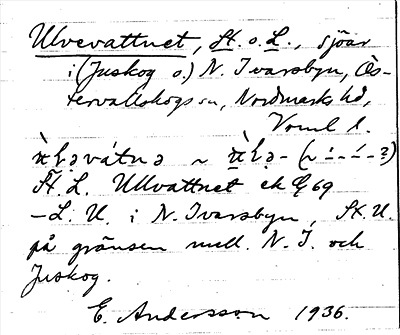 Ulvevattnet, St. o. L., sjöar
i (Juskog o.) N. Ivarsbyn, Ös-
tervallskogs sn, Nordmarks hd,
Vrml l.
St. L. Ullvattnet ek
– L. U. i N. Ivarsbyn, St. U.
på gränsen mell. N. I. och
Juskog.
E. Andersson 1936.